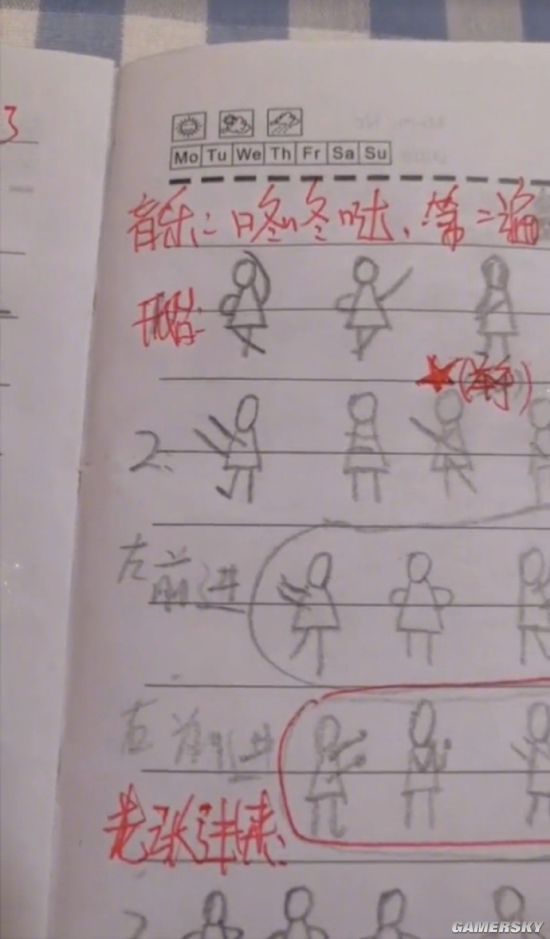 3
Mo Tu We Th Fr Sa Su
音乐:咚咚哒、第二遍
开始:
★(举手)
2.
左前进
右前进
老张进来:
2
GAMERSKY